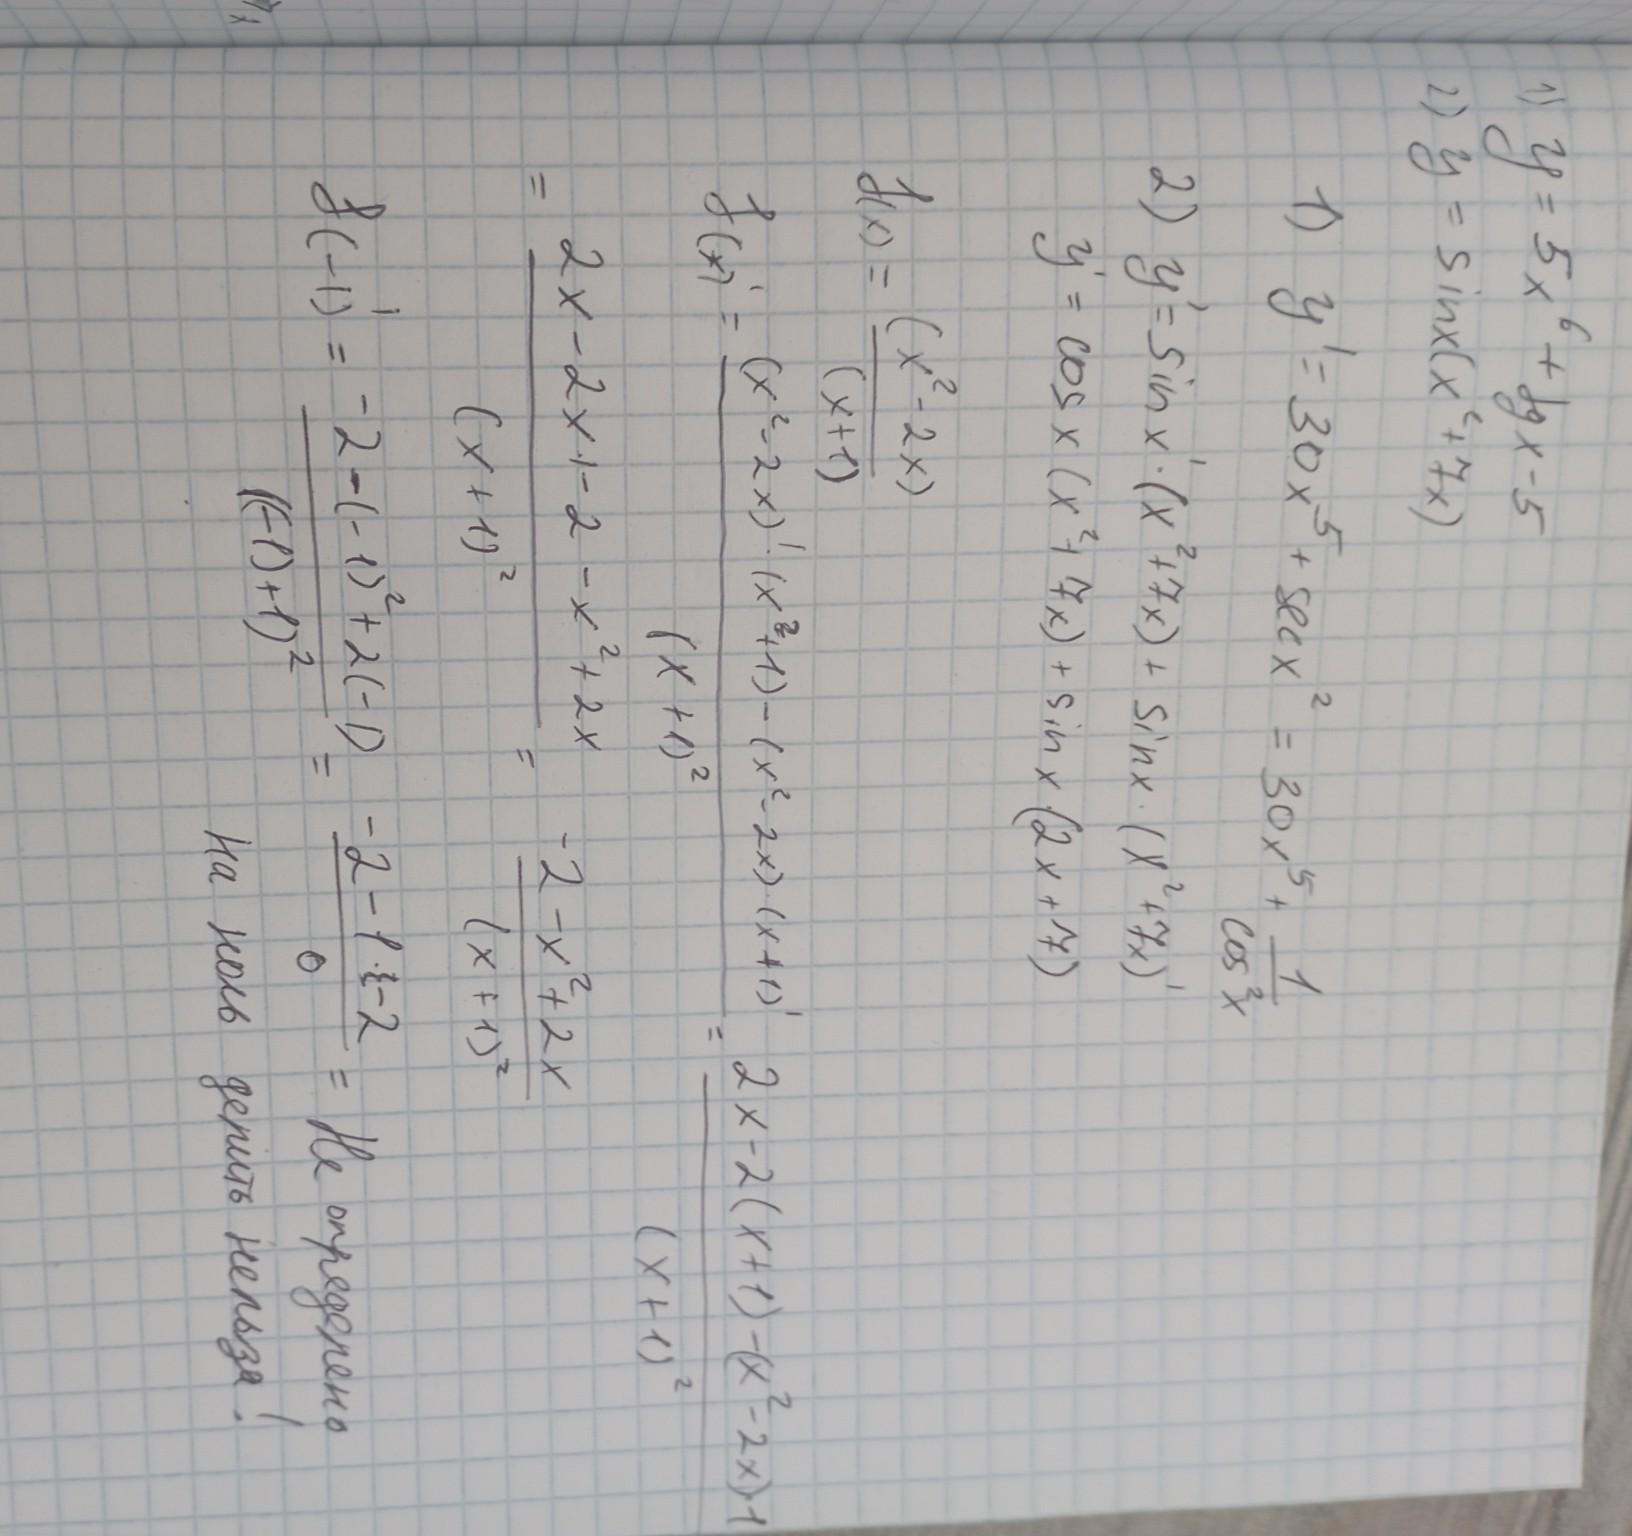 1) y = 5x⁶ + tgx - 5
2) y = sinx(x² + 7x)
1) y' = 30x⁵ + secx² = 30x⁵ + 1/cos²x
2) y' = sinx' · (x² + 7x) + sinx · (x² + 7x)'
y' = cosx(x² + 7x) + sinx · (2x + 7)
f(x) = (x² - 2x)/(x + 1)
f(x)' = ((x² - 2x)' · (x² + 1) - (x² - 2x) · (x + 1)')/(x + 1)² = (2x - 2(x + 1) - (x² - 2x) · 1)/(x + 1)²
= (2x - 2x · 1 - 2 - x² + 2x)/(x + 1)² = (-2 - x² + 2x)/(x + 1)²
f(-1)' = (-2 - (-1)² + 2(-1))/((-1) + 1)² = (-2 - 1 - 2)/0 = Не определено
На ноль делить нельзя!